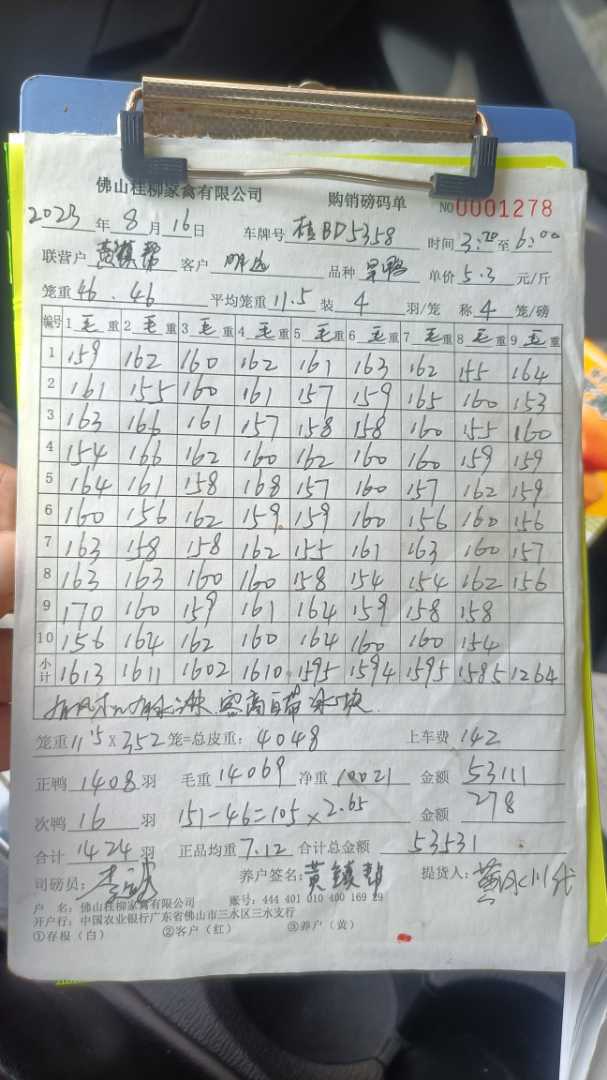 佛山桂柳家禽有限公司 购销磅码单 NO0001278
2023年8月16日 车牌号 桂BD5358 时间3:20至6:00
联营户 黄镇帮 客户 品种 旱鸭 单价5.3元/斤
笼重46.46 平均笼重11.5装4羽/笼 称4笼/磅
编号 1毛重 2毛重 3毛重 4毛重 5毛重 6毛重 7毛重 8毛重 9毛重
1 159 162 160 162 161 163 162 155 164
2 161 155 160 161 157 159 165 160 153
3 163 166 161 157 158 158 160 155 160
4 154 166 162 160 162 160 160 159 159
5 164 161 158 168 157 160 157 162 159
6 160 156 162 159 159 160 156 160 156
7 163 158 158 162 155 161 163 160 157
8 163 163 160 160 158 154 154 162 156
9 170 160 159 161 164 159 158 158
10 156 164 162 160 164 160 160 154
小计 1613 1611 1602 1610 1595 1594 1595 1585 1264
客商自带冰块
笼重11.5X352笼=总皮重:4048 上车费142
正鸭1408羽 毛重14069净重10021 金额53111
次鸭16羽 151-46=105×2.65 金额278
合计1424羽 正品均重7.12合计总金额53531
司磅员: 养户签名:黄镇帮 提货人:
户 名:佛山桂柳家禽有限公司 账号:444 401 010 400 169 29
开户行:中国农业银行广东省佛山市三水区三水支行
①存根(白) ②客户(红) ③养户(黄)